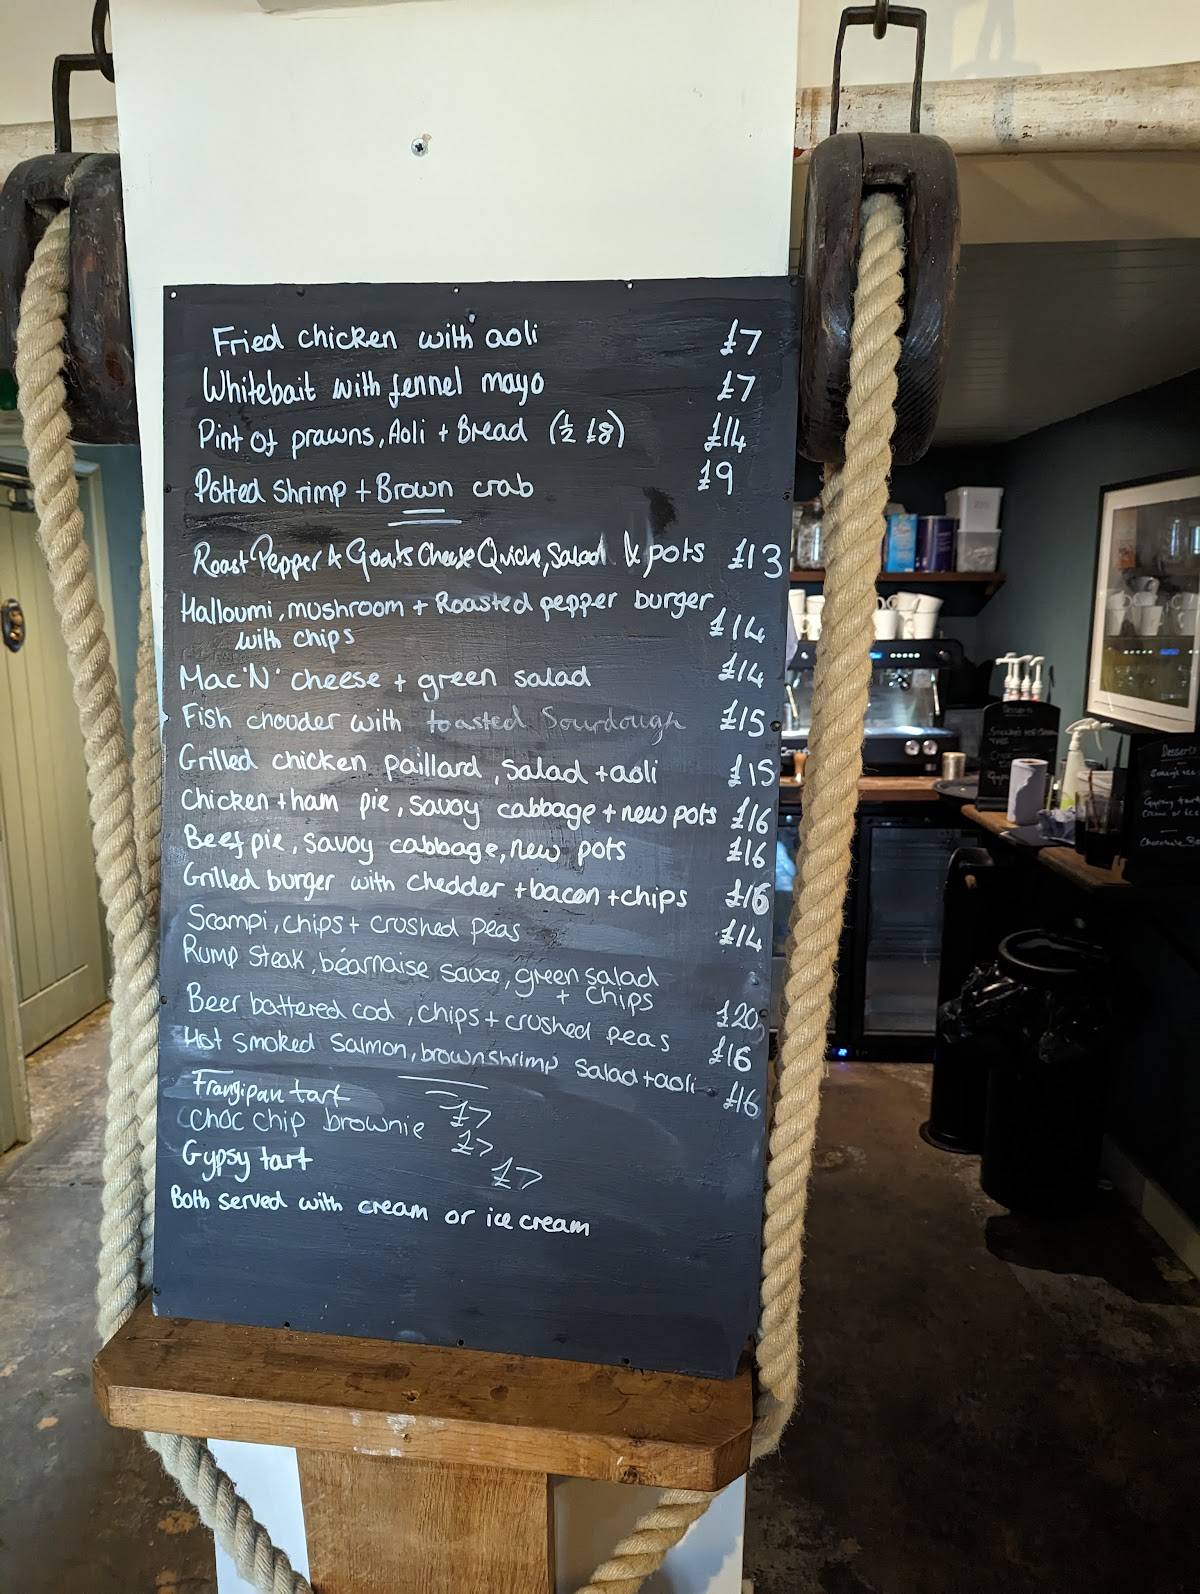 Fried chicken with aoli £7
Whitebait with fennel mayo £7
Pint of prawns, Aoli + Bread (½ £8) £14
Potted Shrimp + Brown crab £9
Roast Pepper & Goats Cheese Quiche, Salad & pots £13
Halloumi, mushroom + Roasted pepper burger
with chips £14
Mac 'N' cheese + green salad £14
Fish chouder with toasted Sourdough £15
Grilled chicken paillard, salad + aoli £15
Chicken + ham pie, savoy cabbage + new pots £16
Beef pie, savoy cabbage, new pots £16
Grilled burger with chedder + bacon + chips £16
Scampi, chips + crushed peas £14
Rump steak, béarnaise sauce, green salad
+ chips £20
Beer battered cod, chips + crushed peas £16
Hot smoked salmon, brown shrimp salad + aoli £16
Frangipan tart £7
Choc chip brownie £7
Gypsy tart £7
Both served with cream or ice cream
Desserts
Desserts